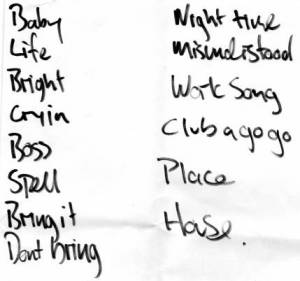 Baby
Life
Bright
Cryin
Boss
Spell
Bring it
Dont Bring
Night time
misunderstood
Work Song
Club a gogo
Place
House.